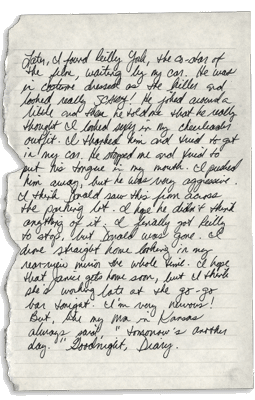 Later, I found Reilly York, the co-star of
the film, waiting by my car. He was
in costume dressed as the killer and
looked really SCARY! He joked around a
little and then he told me that he really
thought I looked sexy in my cheerleader
outfit. I thanked him and tried to get
in my car. He stopped me and tried to
put his tongue in my mouth. I pushed
him away, but he was very aggressive.
I think Donald saw this from across
the parking lot. I hope he didn't think
anything of it. I finally got Reilly
to stop, but Donald was gone. I
drove straight home looking in my
rearview mirror the whole time. I hope
that Janice gets home soon, but I think
she's working late at the go-go
bar tonight. I'm very nervous!
But, like my Ma in Kansas
always said, "Tomorrow's another
day." Goodnight, Diary.